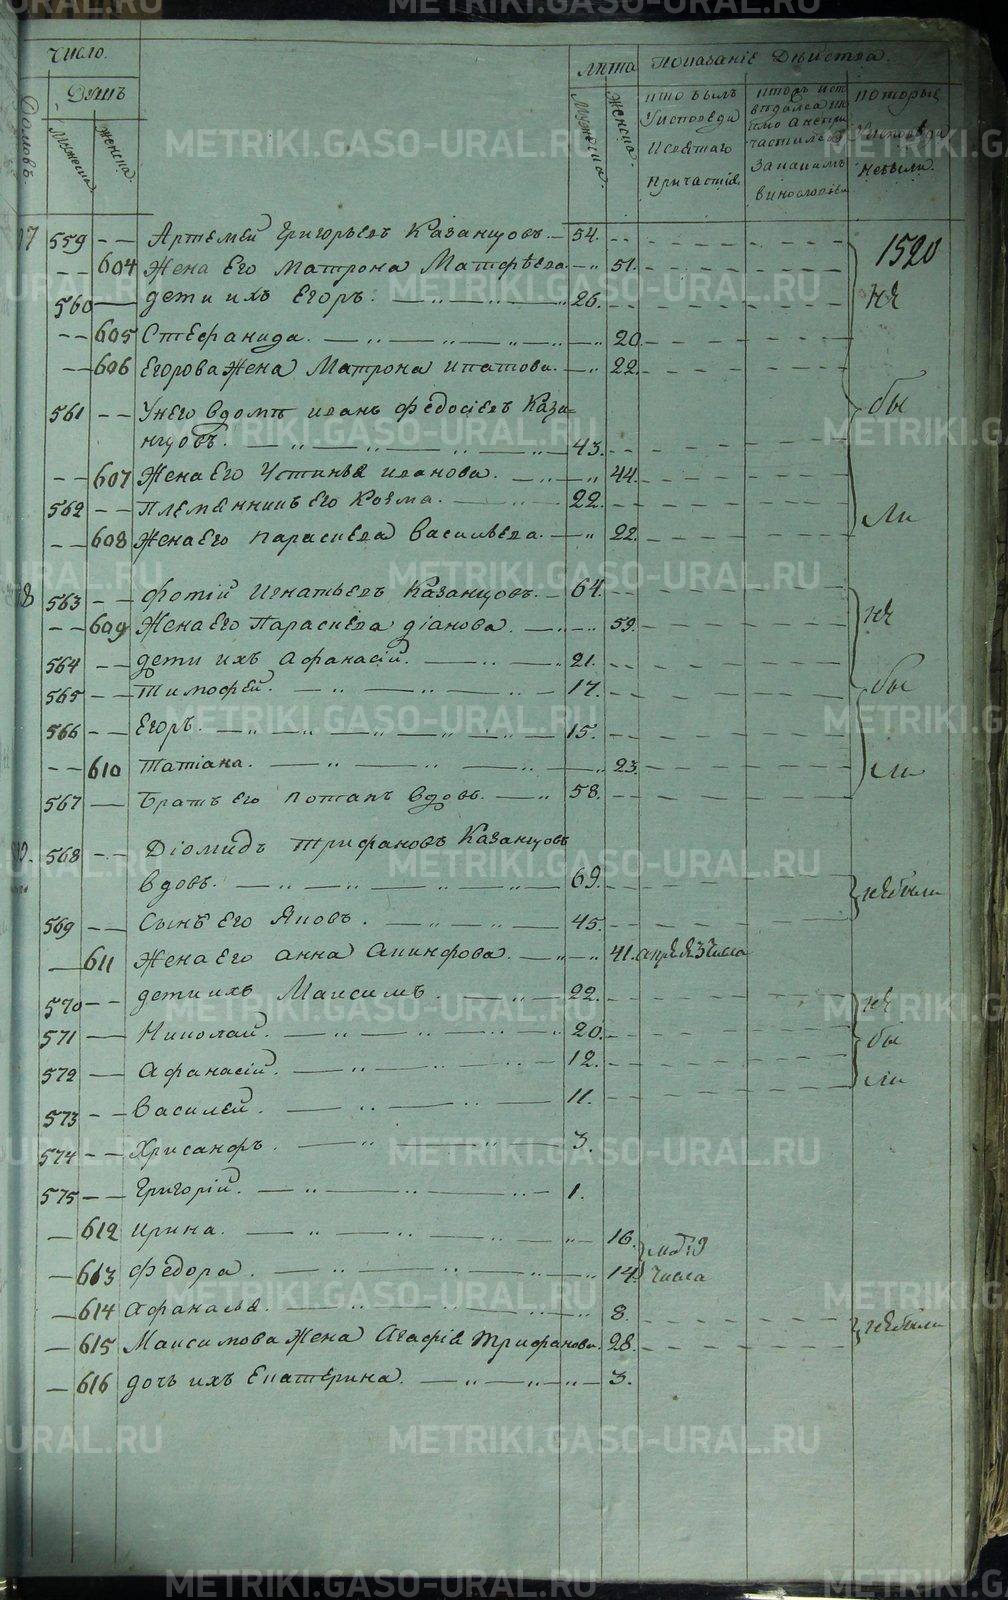 Число
Домовъ.
Душъ
Мужеска.
Женска.
Лѣта
Мужеска.
Женска.
Показаніе Дѣйства.
кто былъ
У исповѣди
И святаго
причастія
которые
У исповѣди
небыли
METRIKI.GASO-URAL.RU
1520
7 559 — — Артемей Григорьевъ Казанцовъ. — 54.
— — 604 Жена Его Матрона Матфѣева — „ 51.
560 — дети ихъ Егоръ. — „ — „ — 26. не
— — 605 Стефанида. — „ — „ — „ — „ 20
— 606 Егорова Жена Матрона ипатова. — „ 22
561 — — Унего вдомѣ иванъ Федосіевъ Каза= бы
нцовъ. — „ — „ — „ — 43.
— — 607 Жена Его Устинья иванова. — „ — „ 44.
562 — — племянникъ Его Козма. — „ — 22. ли
— — 608 Жена Его параскева васильева. — „ 22.
8 563 — — Фотій Игнатьевъ Казанцовъ. — 64. не
— — 609 Жена Его Параскева діанова. — „ — „ 59.
564 — — дети ихъ Афанасій. — „ — 21. бы
565 — — тимофей. — „ — „ — „ — 17.
566 — — Егоръ. — „ — „ — „ — 15.
— — 610 татіана. — „ — „ — „ — „ 23. ли
567 — братъ Его потапъ вдовъ. — „ 58.
568 — — Діомидъ трифановъ Казанцовъ
вдовъ. — „ — „ — „ — „ — 69. небыли
569 — — Сынъ Его Яковъ. — „ — 45.
— 611 Жена Его анна Акинфова. — „ — „ 41. апреля 3 числа
570 — — дети ихъ Максимъ. — „ — 22. не
571 — Николай. — „ — „ — „ 20. бы
572 — Афанасій. — „ — „ — 12. ли
573 — — василей. — „ — „ — 11.
574 — — Хрисанфъ. — „ — „ — 3.
575 — — Григорій. — „ — „ — „ — 1.
— 612 ирина. — „ — „ — „ — „ 16.
— 613 Федора. — „ — „ — „ — „ 14. числа
— 614 Афанасья. — „ — „ — „ — „ 8. небыли
— 615 Максимова Жена Агафія трифанова. 28.
— 616 дочь ихъ Екатерина. — „ — „ — „ — 3.